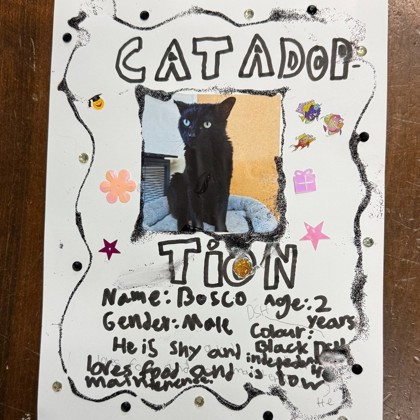 CAT ADOP-
TION
Name: Bosco Age: 2 years
Gender: Male Colour: Black DSH
He is shy and independent
loves food and is low
maintenense.
He